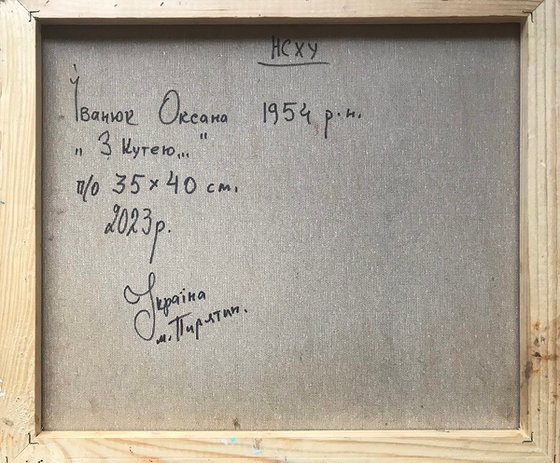 НСХУ
Іванюк Оксана 1954 р.н.
„З Кутею..."
п/о 35×40 см.
2023р.
Україна
м. Пирятин.